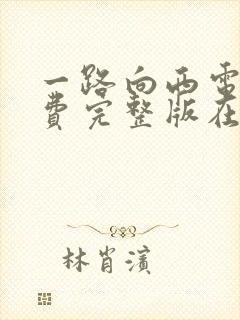 一路向西电
费完整版在
林肖滨